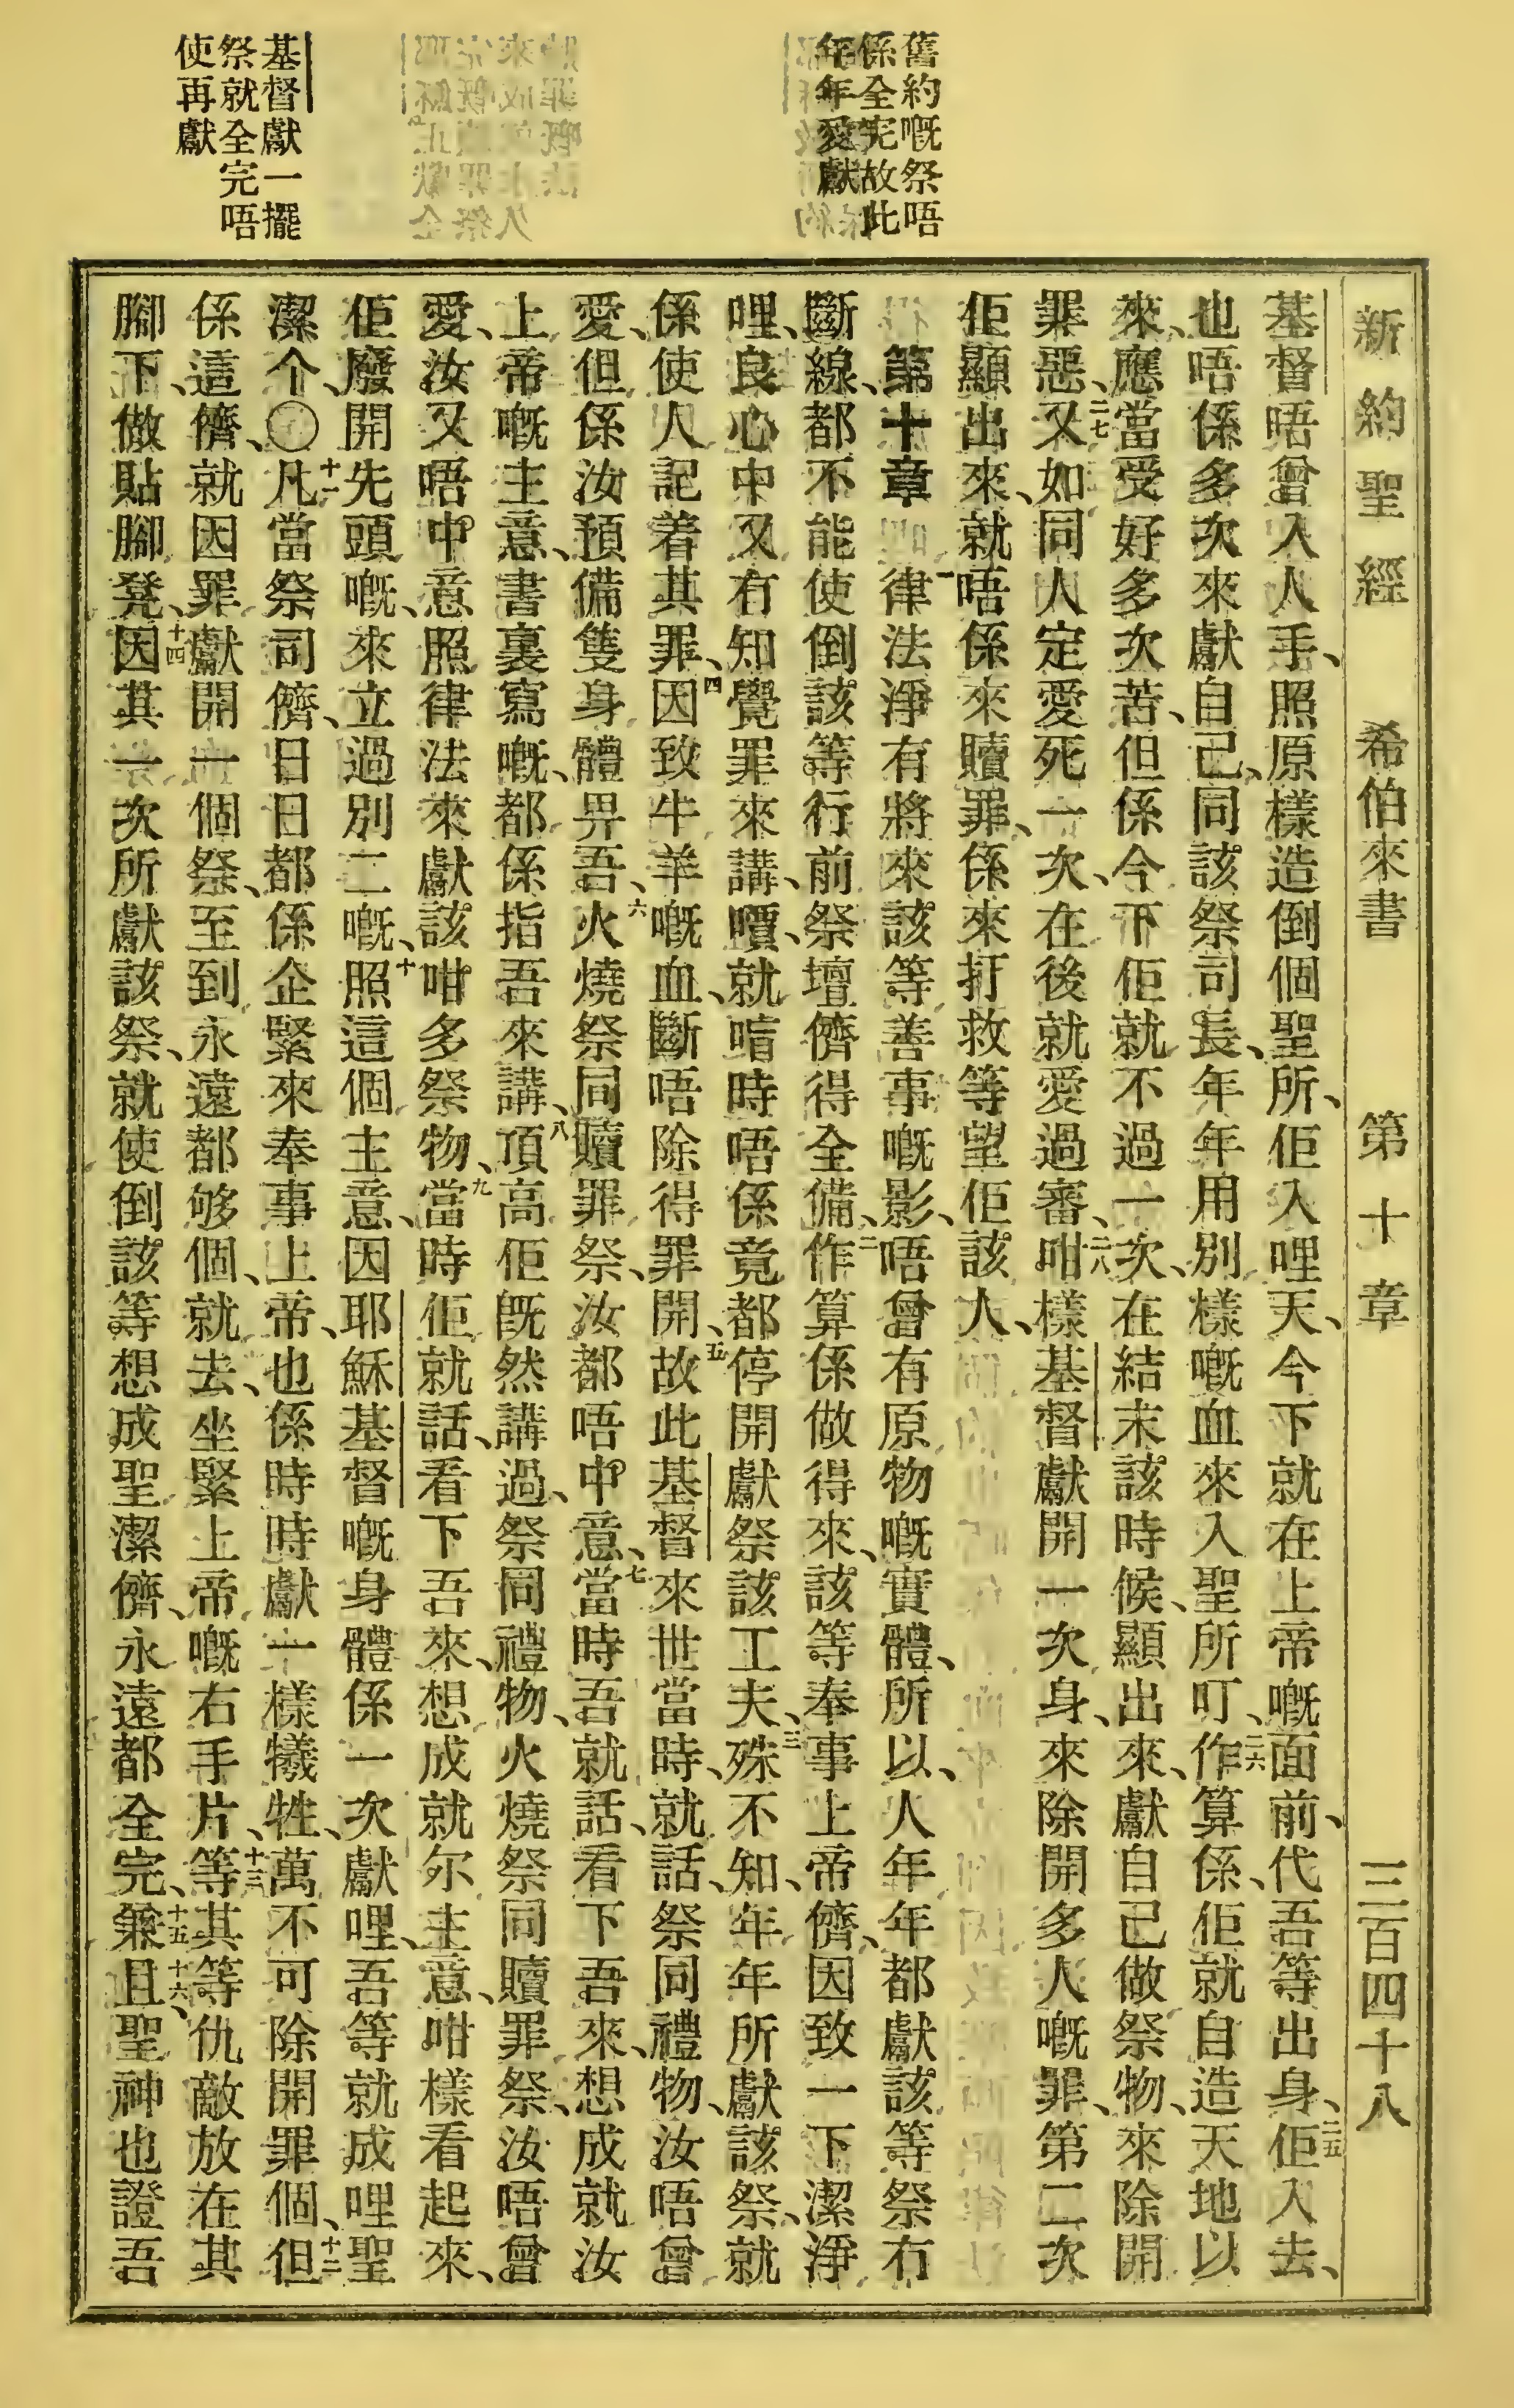 新約聖經 希伯來書 第十章 三百四十八
舊約嘅祭唔
係全完故此
年年愛獻
基督獻一擺
祭就全完唔
使再獻
基督唔曾入人手、照原樣造倒個聖所、佢入哩天、今下就在上帝嘅面前、代吾等出身、二五佢入去、
也唔係多次來獻自己、同該祭司長、年年用別樣嘅血來入聖所叮、二六作算係、佢就自造天地以
來、應當受好多次苦、但係今下佢就不過一次、在結末該時候、顯出來、獻自己做祭物、來除開
罪惡、二七又如同人定愛死一次、在後就愛過審、二八咁樣基督獻開一次身、來除開多人嘅罪、第二次
佢顯出來、就唔係來贖罪、係來打救等望佢該人、
第十章 一律法淨有將來該等善事嘅影、唔曾有原物嘅實體、所以、人年年都獻該等祭冇
斷線、都不能使倒該等行前祭壇儕得全備、二作算係做得來、該等奉事上帝儕、因致一下潔淨
哩、良心中又冇知覺罪來講、嘪就喑時唔係竟都停開獻祭該工夫、三殊不知、年年所獻該祭、就
係使人記着其罪、四因致牛羊嘅血、斷唔除得罪開、五故此基督來世當時、就話、祭同禮物、汝唔曾
愛、但係汝預備隻身體畀吾、六火燒祭同贖罪祭、汝都唔中意、七當時吾就話、看下吾來、想成就汝
上帝嘅主意、書裏寫嘅、都係指吾來講、八頂高佢既然講過、祭同禮物、火燒祭同贖罪祭、汝唔曾
愛、汝又唔中意照律法來獻該咁多祭物、九當時佢就話、看下吾來、想成就尔主意、咁樣看起來、
佢廢開先頭嘅、來立過別二嘅、十照這個主意、因耶穌基督嘅身體係一次獻哩、吾等就成哩聖
潔个、〇十一凡當祭司儕、日日都係企緊來奉事上帝、也係時時獻一樣犧牲、萬不可除開罪個、十二但
係這儕、就因罪獻開一個祭、至到永遠都够個、就去、坐緊上帝嘅右手片、十三等其等仇敵放在其
腳下、做貼腳凳、十四因其一次所獻該祭、就使倒該等想成聖潔儕、永遠都全完、十五兼且、十六聖神也證吾